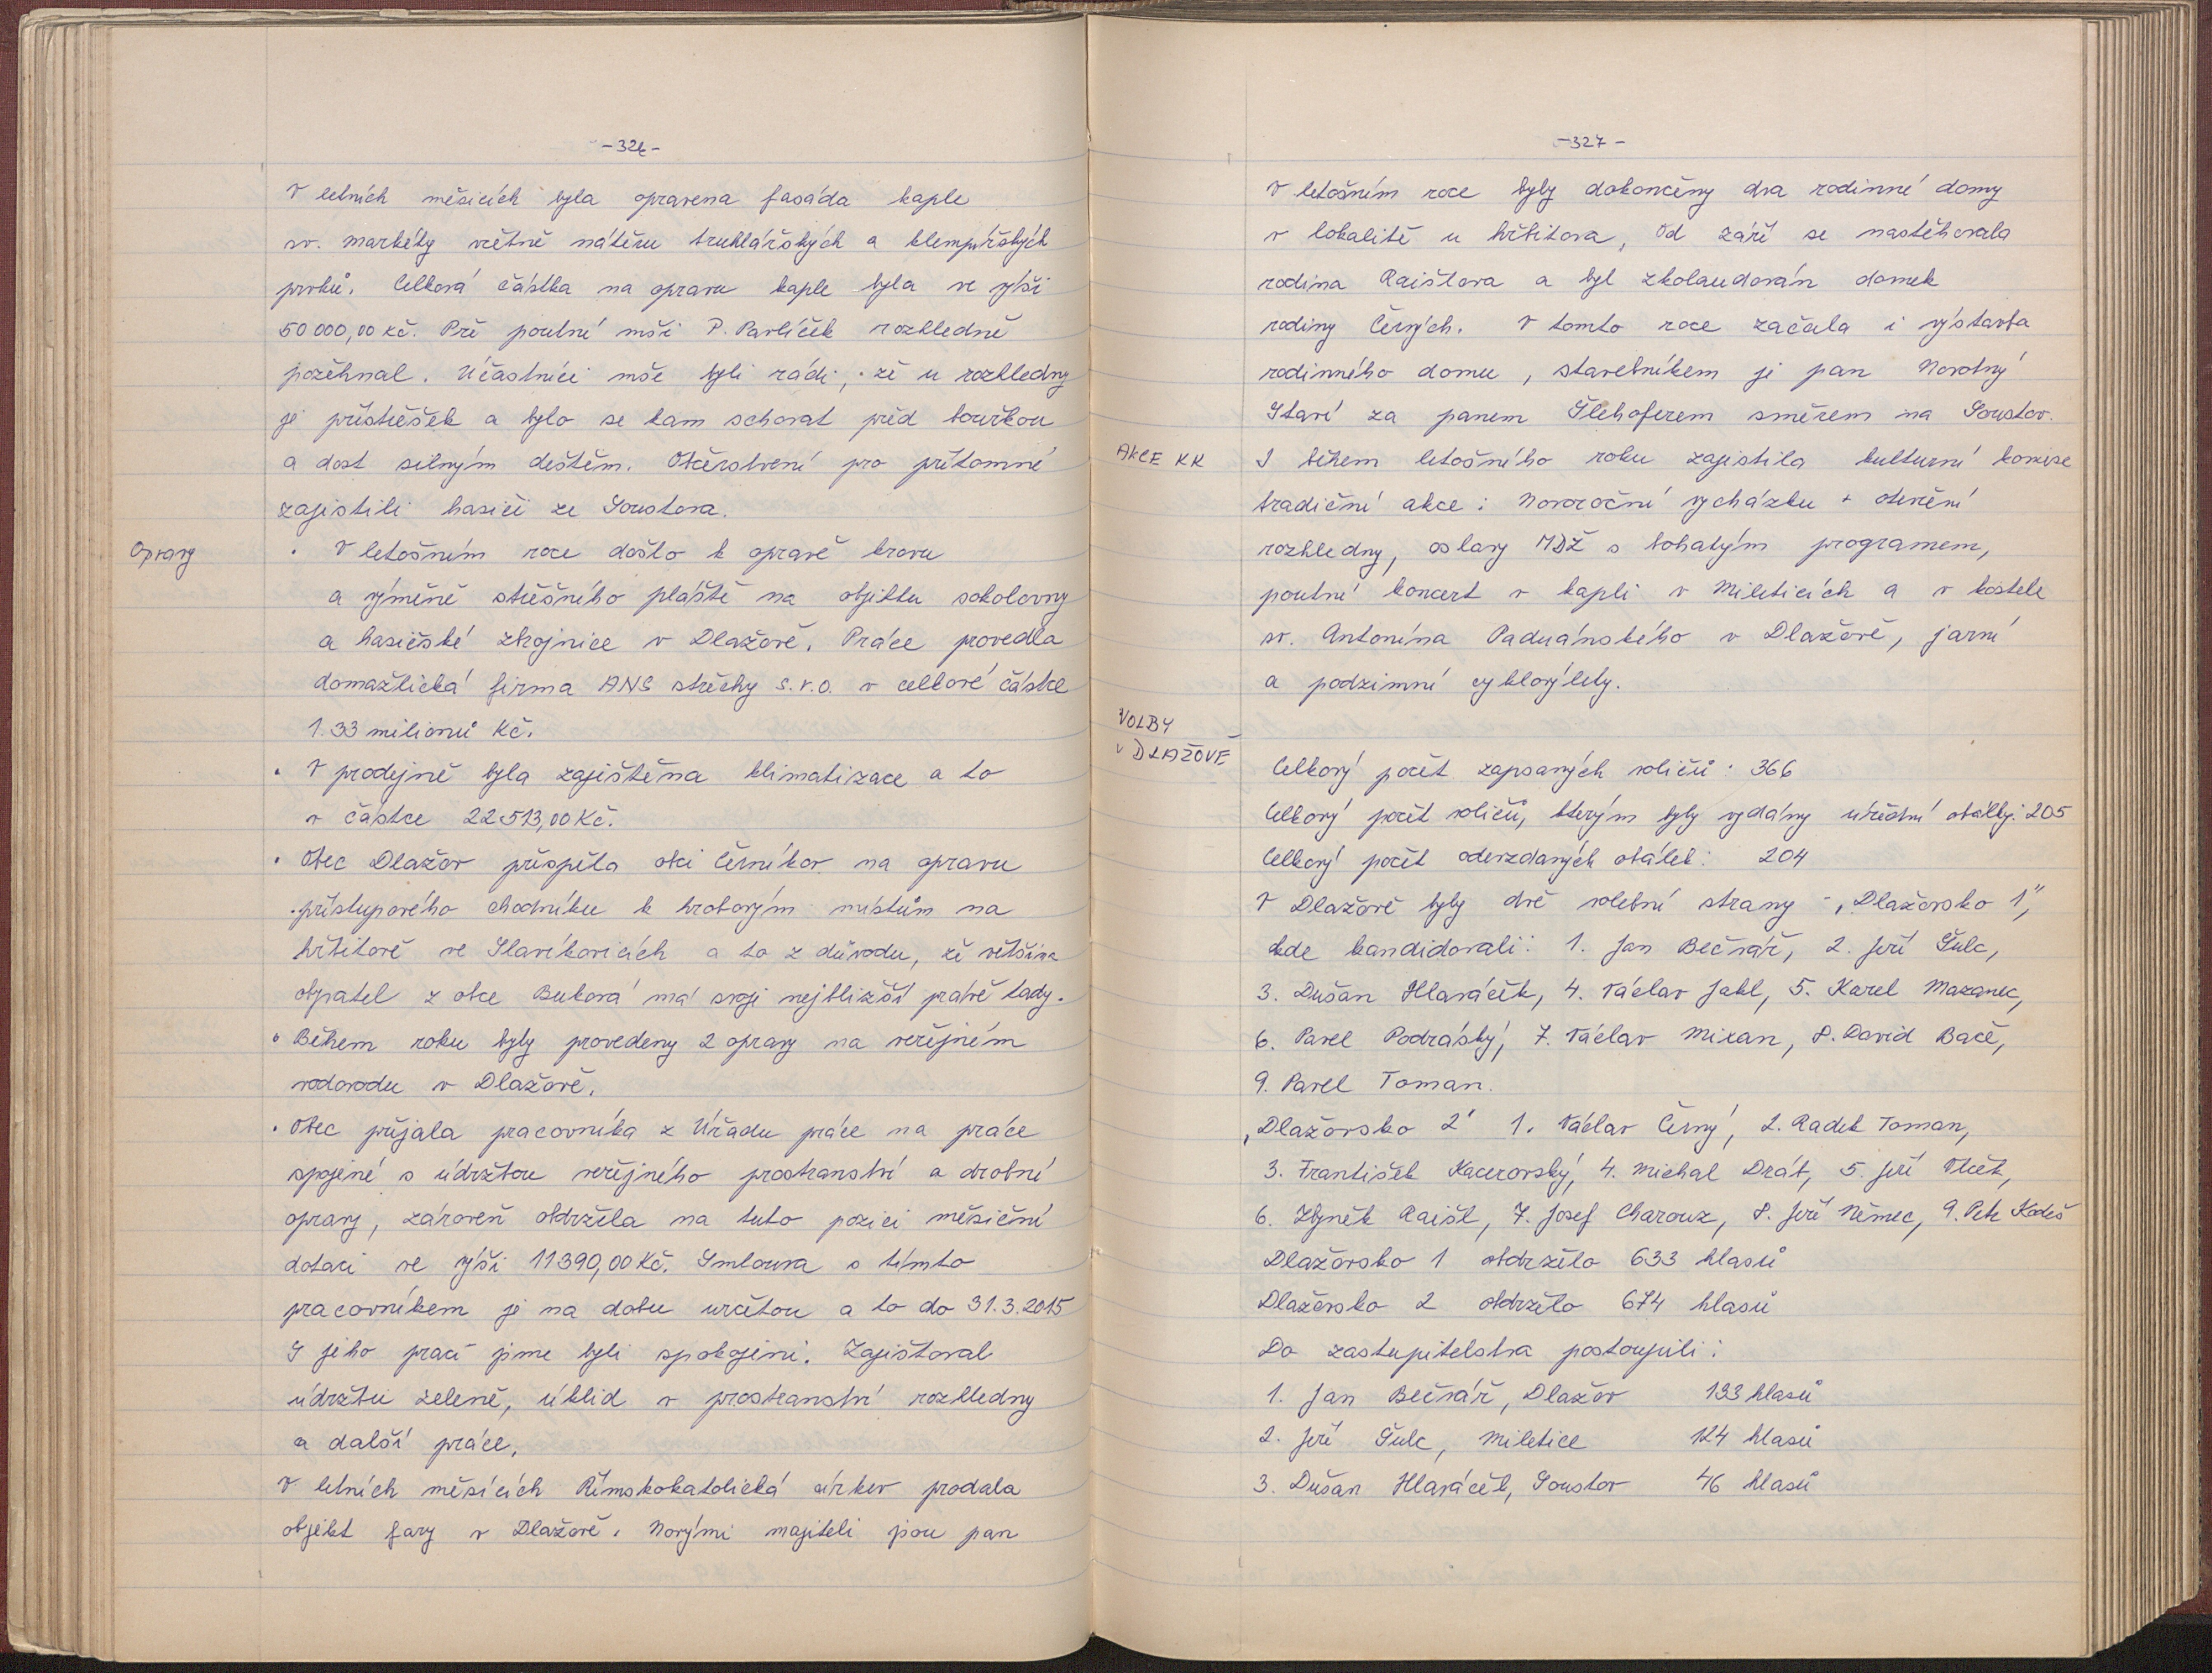 -326-
V letních měsicích byla opravena fasáda kaple
sv. Markéty včetně nátěru truhlářských a klempířských
prvků. Celková částka na opravu kaple byla ve výši
50 000,00 Kč. Při poutní mši P. Pavlíček rozhledně
požehnal. Účastníci mše byli rádi, že u rozhledny
je přístřešek a bylo se kam schovat před bouřkou
a dost silným deštěm. Občerstvení pro přítomné
zajistili hasiči ze Soustova.
Opravy
• V letošním roce došlo k opravě krovu
a výměně střešního pláště na objektu sokolovny
a hasičské zbrojnice v Dlažově. Práce provedla
domažlická firma ANS střechy s.r.o. v celkové částce
1.33 milionů Kč.
• V prodejně byla zajištěna klimatizace a to
v částce 22 513,00 Kč.
• Obec Dlažov přispěla obci Černíkov na opravu
přístupového chodníku k hrobovým místům na
hřbitově ve Slavíkovicích a to z důvodu, že většina
obyvatel z obce Buková má svoji nejbližší právě tady.
• Během roku byly provedeny 2 opravy na veřejném
vodovodu v Dlažově.
• Obec přijala pracovníka z Úřadu práce na práce
spojené s údržbou veřejného prostranství a drobné
opravy, zároveň obdržela na tuto pozici měsíční
dotaci ve výši 11 390,00 Kč. Smlouva s tímto
pracovníkem je na dobu určitou a to do 31.3.2015
S jeho prací jsme byli spokojeni. Zajišťoval
údržbu zeleně, úklid v prostranství rozhledny
a další práce.
V letních měsících Římskokatolická církev prodala
objekt fary v Dlažově. Novými majiteli jsou pan
-327-
V letošním roce byly dokončeny dva rodinné domy
v lokalitě u hřbitova, Od září se nastěhovala
rodina Raištova a byl zkolaudován domek
rodiny Černých. V tomto roce začala i výstavba
rodinného domu, stavebníkem je pan Novotný
Staví za panem Šlehoferem směrem na Soustov.
AKCE KK
I během letošního roku zajistila kulturní komise
tradiční akce: Novoroční vycházku + otevření
rozhledny, oslavy MDŽ s bohatým programem,
poutní koncert v kapli v Mileticích a v kostele
sv. Antonína Paduánského v Dlažově, jarní
a podzimní cyklovýlety.
VOLBY
v DLAŽOVĚ
Celkový počet zapsaných voličů: 366
Celkový počet voličů, kterým byly vydány úřední obálky: 205
Celkový počet odevzdaných obálek: 204
V Dlažově byly dvě volební strany - „Dlažovsko 1",
kde kandidovali: 1. Jan Bečvář, 2. Jiří Šulc,
3. Dušan Hlaváček, 4. Václav Jakl, 5. Karel Mazanec,
6. Pavel Podrásky, 7. Václav Mixan, 8. David Bače,
9. Pavel Toman.
„Dlažovsko 2" 1. Václav Černý, 2. Radek Toman,
3. František Kacerovský, 4. Michal Drát, 5. Jiří Vlček,
6. Zbyněk Raišl, 7. Josef Charouz, 8. Jiří Němec, 9. Petr Kodeš
Dlažovsko 1 obdrželo 633 hlasů
Dlažovsko 2 obdrželo 674 hlasů
Do zastupitelstva postoupili:
1. Jan Bečvář, Dlažov 133 hlasů
2. Jiří Šulc, Miletice 124 hlasů
3. Dušan Hlaváček, Soustov 46 hlasů